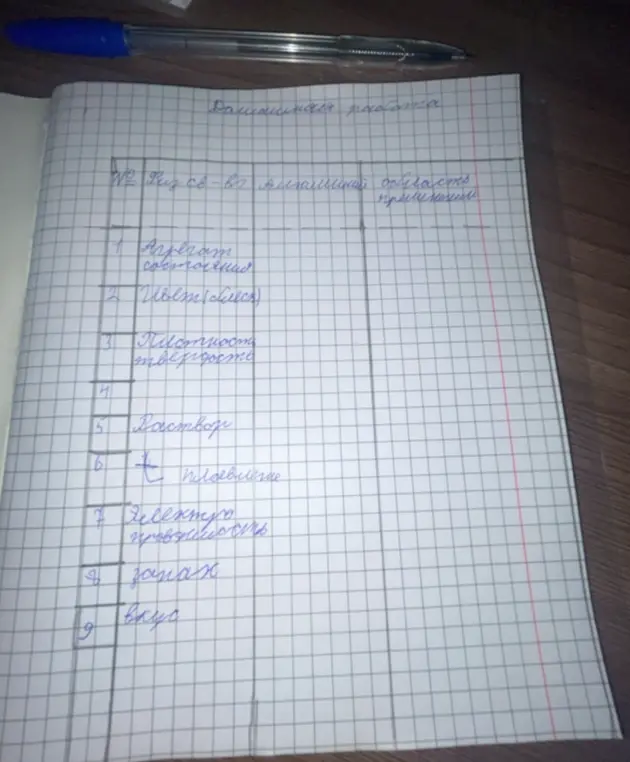 Домашняя работа
№ Физ св-ва Алюминий область
применения
1 Агрегат
состояния
2 Цвет (блеск)
3 Плотность
твёрдость
4
5 Раствор
6 t
плавления
7 Электро
8 запах
9 вкус